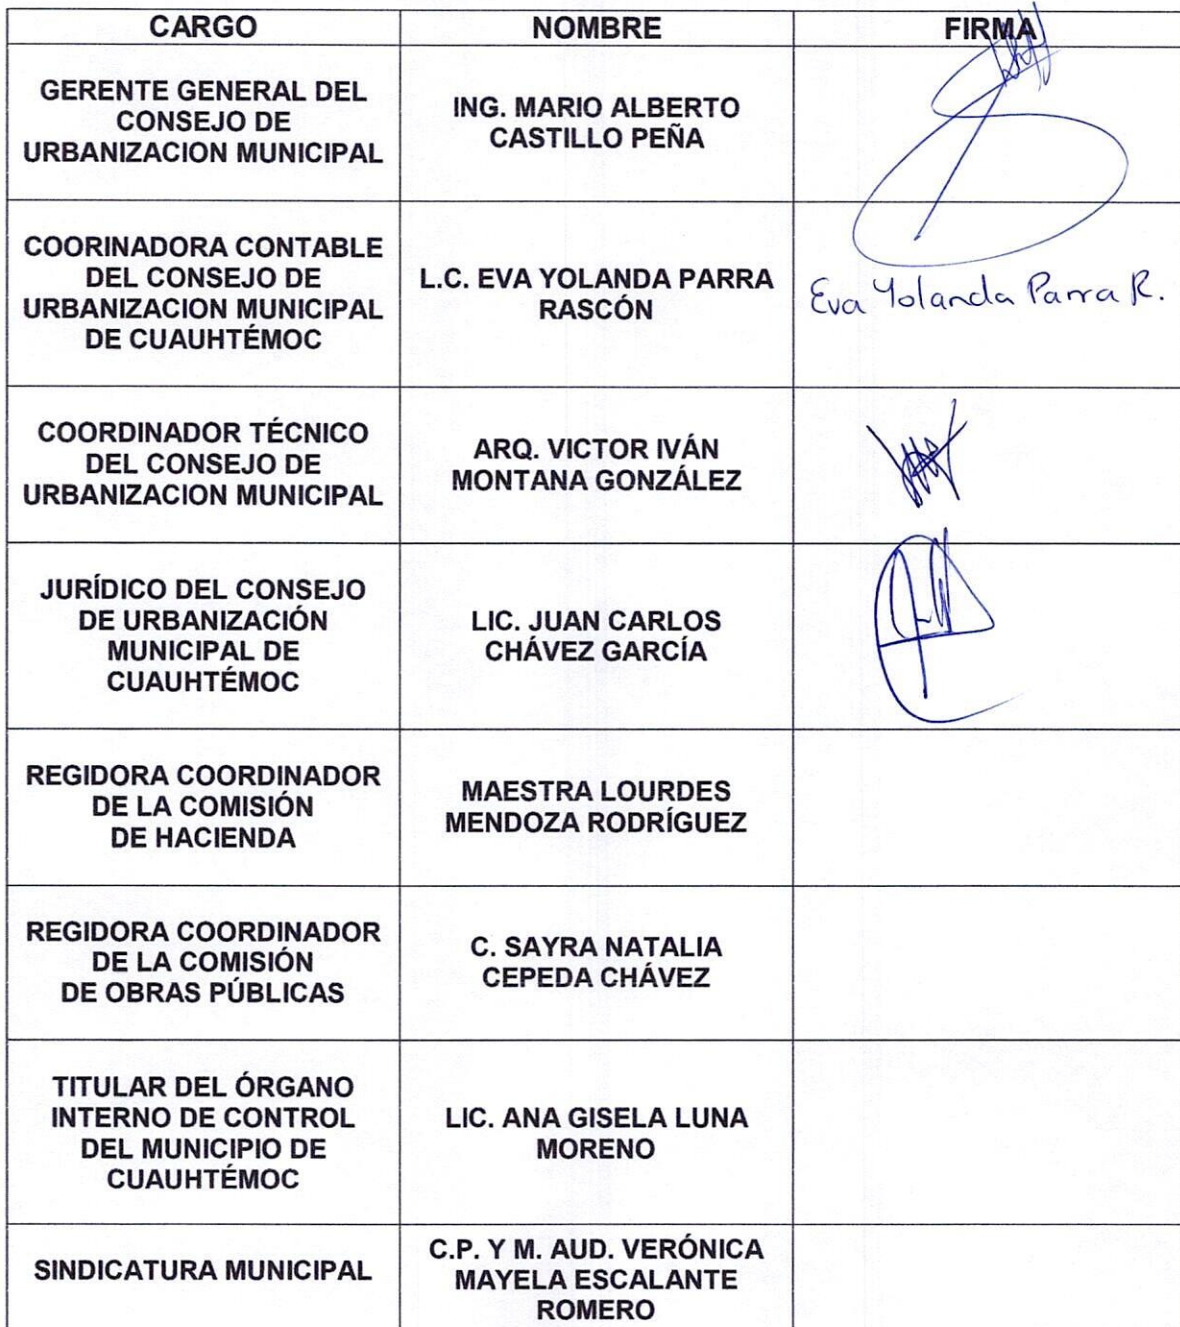 CARGO NOMBRE FIRMA
GERENTE GENERAL DEL
CONSEJO DE
URBANIZACION MUNICIPAL
ING. MARIO ALBERTO
CASTILLO PEÑA
COORINADORA CONTABLE
DEL CONSEJO DE
URBANIZACION MUNICIPAL
DE CUAUHTÉMOC
L.C. EVA YOLANDA PARRA
RASCÓN
Eva Yolanda Parra R.
COORDINADOR TÉCNICO
DEL CONSEJO DE
URBANIZACION MUNICIPAL
ARQ. VICTOR IVÁN
MONTANA GONZÁLEZ
JURÍDICO DEL CONSEJO
DE URBANIZACIÓN
MUNICIPAL DE
CUAUHTÉMOC
LIC. JUAN CARLOS
CHÁVEZ GARCÍA
REGIDORA COORDINADOR
DE LA COMISIÓN
DE HACIENDA
MAESTRA LOURDES
MENDOZA RODRÍGUEZ
REGIDORA COORDINADOR
DE LA COMISIÓN
DE OBRAS PÚBLICAS
C. SAYRA NATALIA
CEPEDA CHÁVEZ
TITULAR DEL ÓRGANO
INTERNO DE CONTROL
DEL MUNICIPIO DE
CUAUHTÉMOC
LIC. ANA GISELA LUNA
MORENO
SINDICATURA MUNICIPAL
C.P. Y M. AUD. VERÓNICA
MAYELA ESCALANTE
ROMERO